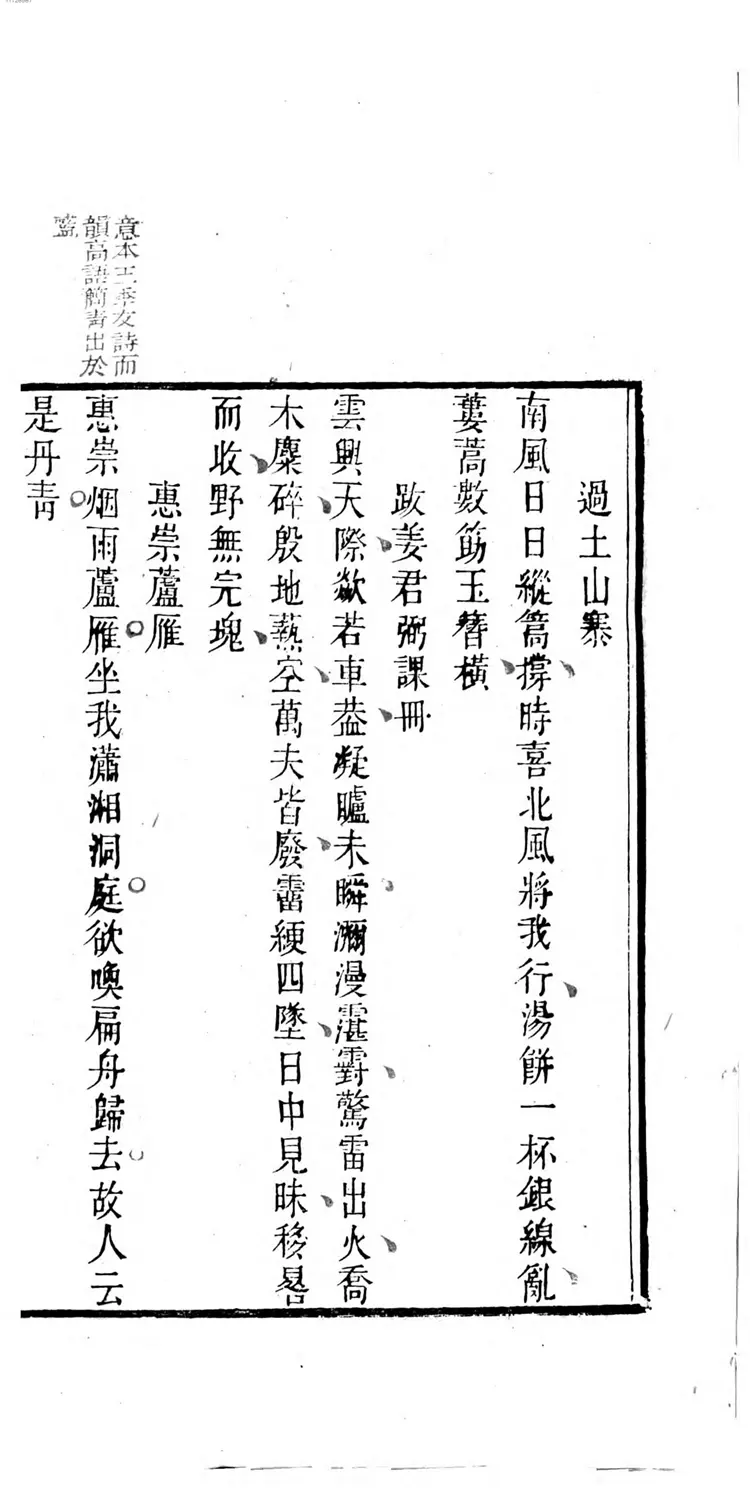 意本王季友詩而
韻高語簡青出於
藍
過土山寨
南風日日縱篙撐時喜北風將我行湯餅一杯銀線亂
蔞蒿數筯玉簪橫
跋姜君弼課冊
雲興天際歘若車葢凝矑未瞬瀰漫霮䨴驚雷出火喬
木麋碎殷地爇空萬夫皆廢霤綆四墜日中見昧移晷
而收野無完塊
惠崇蘆雁
惠崇烟雨蘆雁坐我瀟湘洞庭欲喚扁舟歸去故人云
是丹青